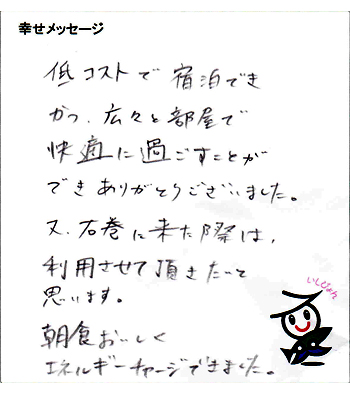 幸せメッセージ
低コストで宿泊でき
かつ、広々と部屋で
快適に過ごすことが
できありがとうございました。
又、石巻に来た際は、
利用させて頂きたいと
思います。
朝食おいしく
エネルギーチャージできました。
いしぴょん